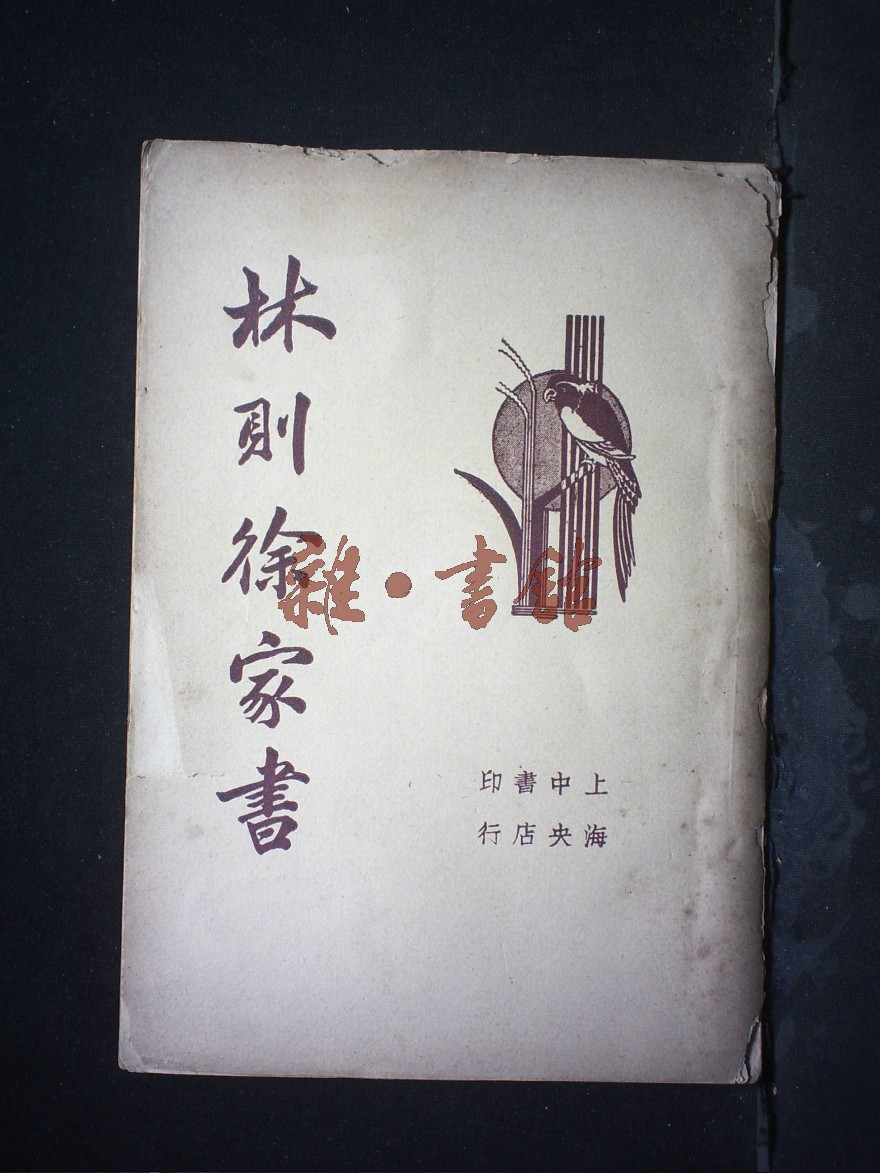 林則徐家書
雜•書館
上海
中央
書店
印行